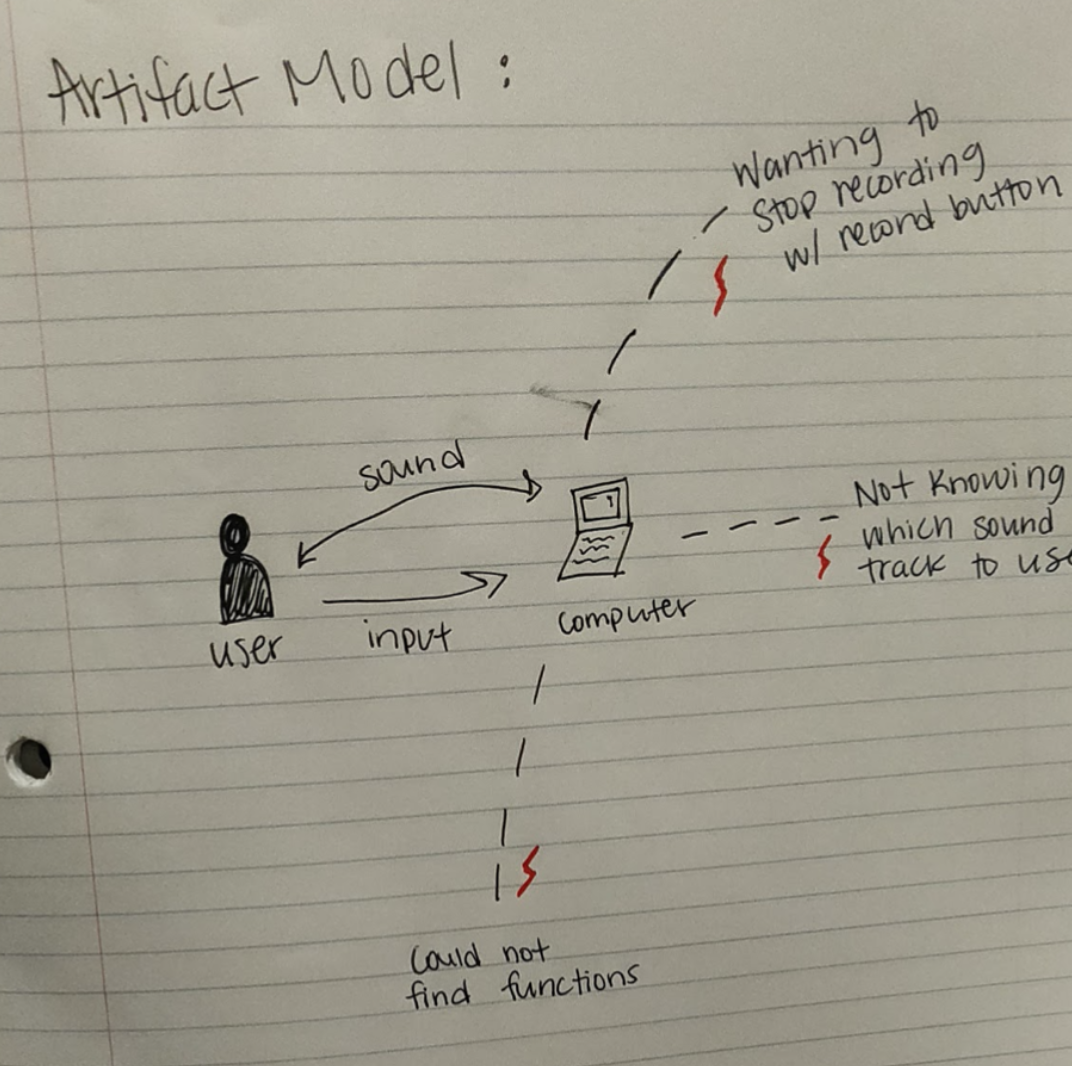 Artifact Model :
Wanting to
Stop recording
w/ record button
sound
Not Knowing
which sound
track to use
user
input
computer
Could not
find functions